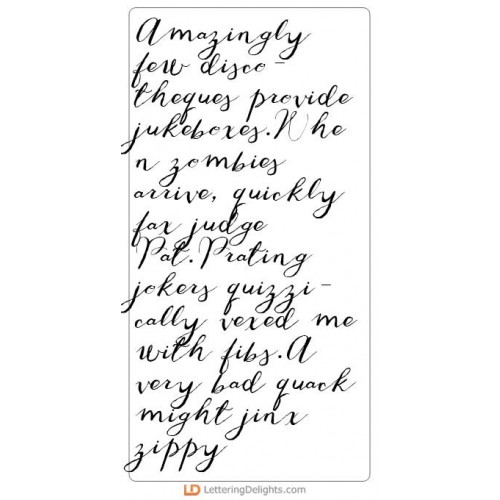 Amazingly
few disco-
theques provide
jukeboxes.Whe
n zombies
arrive, quickly
fax judge
Pat.Prating
jokers quizzi-
cally vexed me
with fibs.A
very bad quack
might jinx
zippy
LD LetteringDelights.com